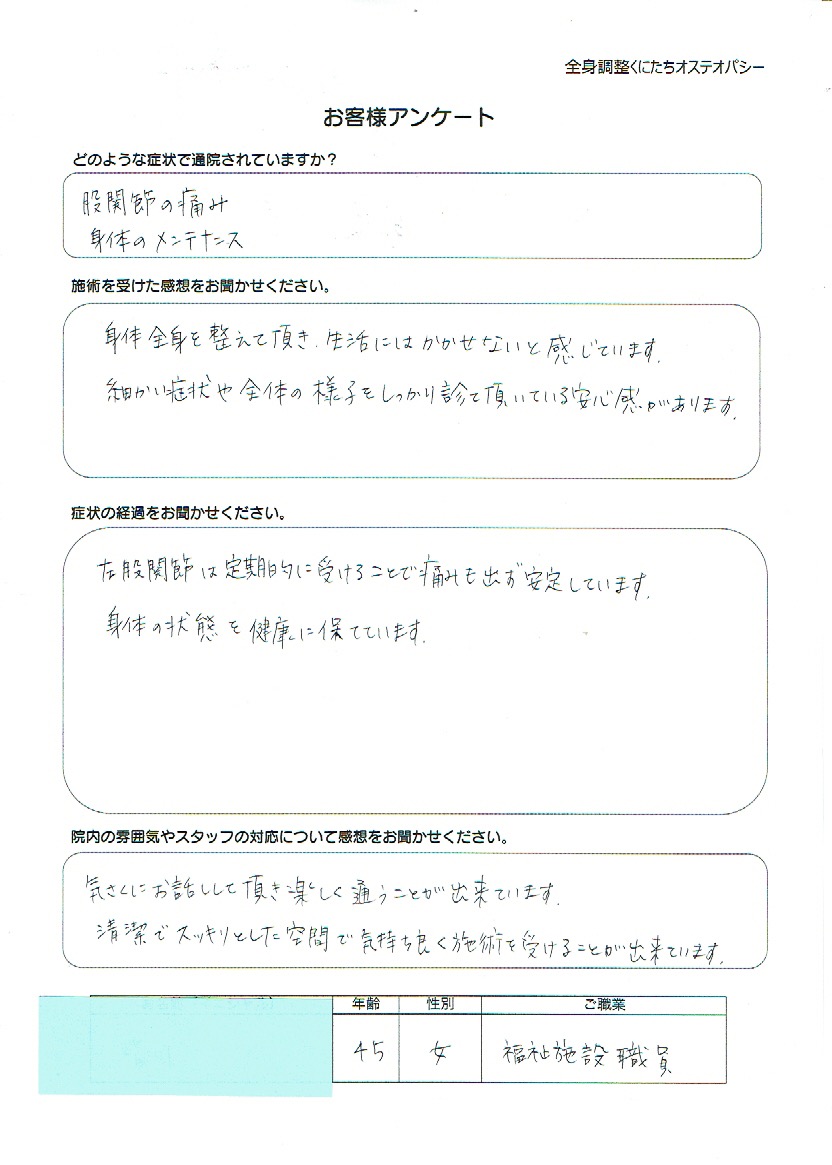 全身調整くにたちオステオパシー
お客様アンケート
どのような症状で通院されていますか？
股関節の痛み
身体のメンテナンス
施術を受けた感想をお聞かせください。
身体全身を整えて頂き、生活にはかかせないと感じています。
細かい症状や全体の様子をしっかり診て頂いている安心感があります。
症状の経過をお聞かせください。
左股関節は定期的に受けることで痛みも出ず安定しています。
身体の状態を健康に保てています。
院内の雰囲気やスタッフの対応について感想をお聞かせください。
気さくにお話しして頂き楽しく通うことが出来ています。
清潔でスッキリとした空間で気持ち良く施術を受けることが出来ています。
年齢 性別 ご職業
45 女 福祉施設職員